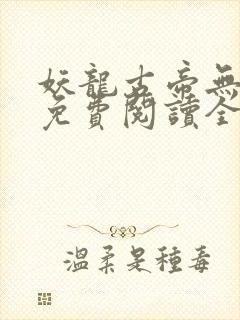 妖龍古帝無
免費閱讀全
溫柔是種毒